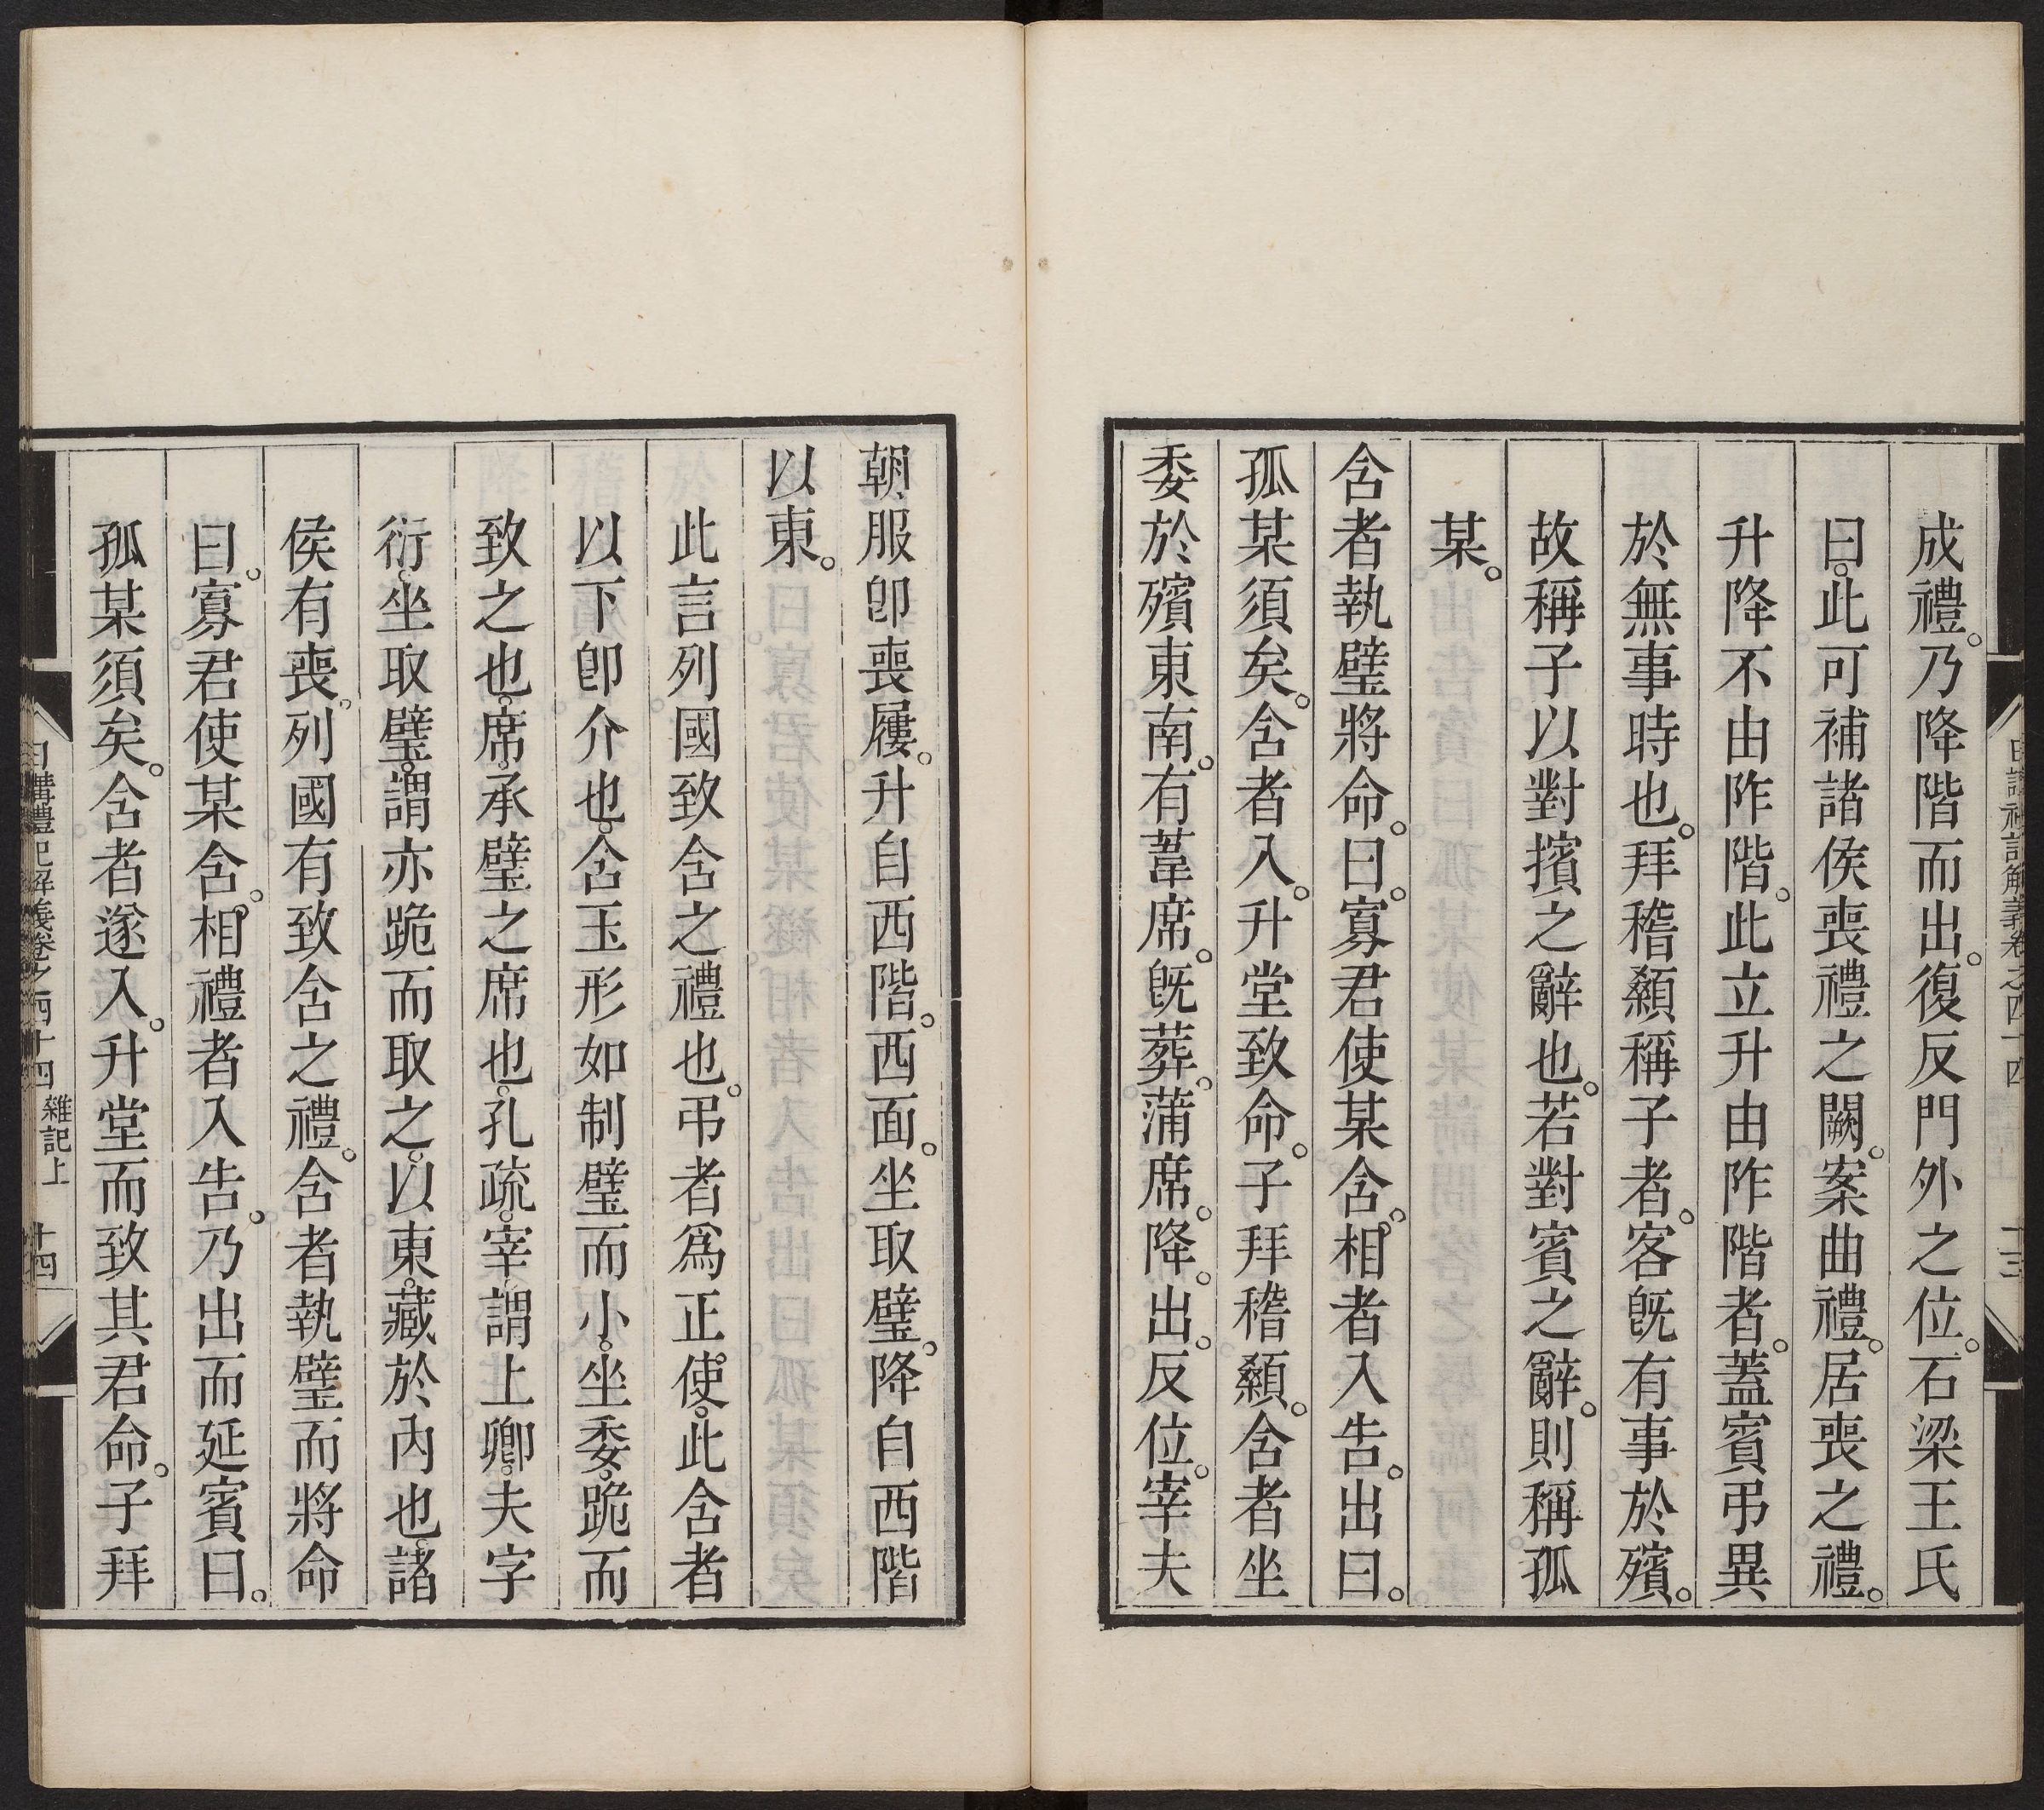 成禮。乃降階而出。復反門外之位。石梁王氏
曰。此可補諸侯喪禮之闕。案曲禮。居喪之禮。
升降不由阼階。此立升由阼階者。蓋賓弔異
於無事時也。拜稽顙稱子者。客旣有事於殯。
故稱子以對擯之辭也。若對賓之辭。則稱孤
某。
含者執璧將命。曰。寡君使某含。相者入告。出曰。
孤某須矣。含者入。升堂致命。子拜稽顙。含者坐
委於殯東南。有葦席。旣葬。蒲席。降。出。反位。宰夫
日講禮記解義卷之四十四
十三
朝服卽喪屨。升自西階。西面。坐取璧。降自西階
以東。
此言列國致含之禮也。弔者爲正使。此含者
以下卽介也。含玉形如制璧而小。坐委。跪而
致之也。席。承璧之席也。孔疏。宰謂上卿。夫字
衍。坐取璧。謂亦跪而取之。以東。藏於內也。諸
侯有喪。列國有致含之禮。含者執璧而將命
曰。寡君使某含。相禮者入告。乃出而延賓曰。
孤某須矣。含者遂入。升堂而致其君命。子拜
日講禮記解義卷之四十四 雜記上 十四